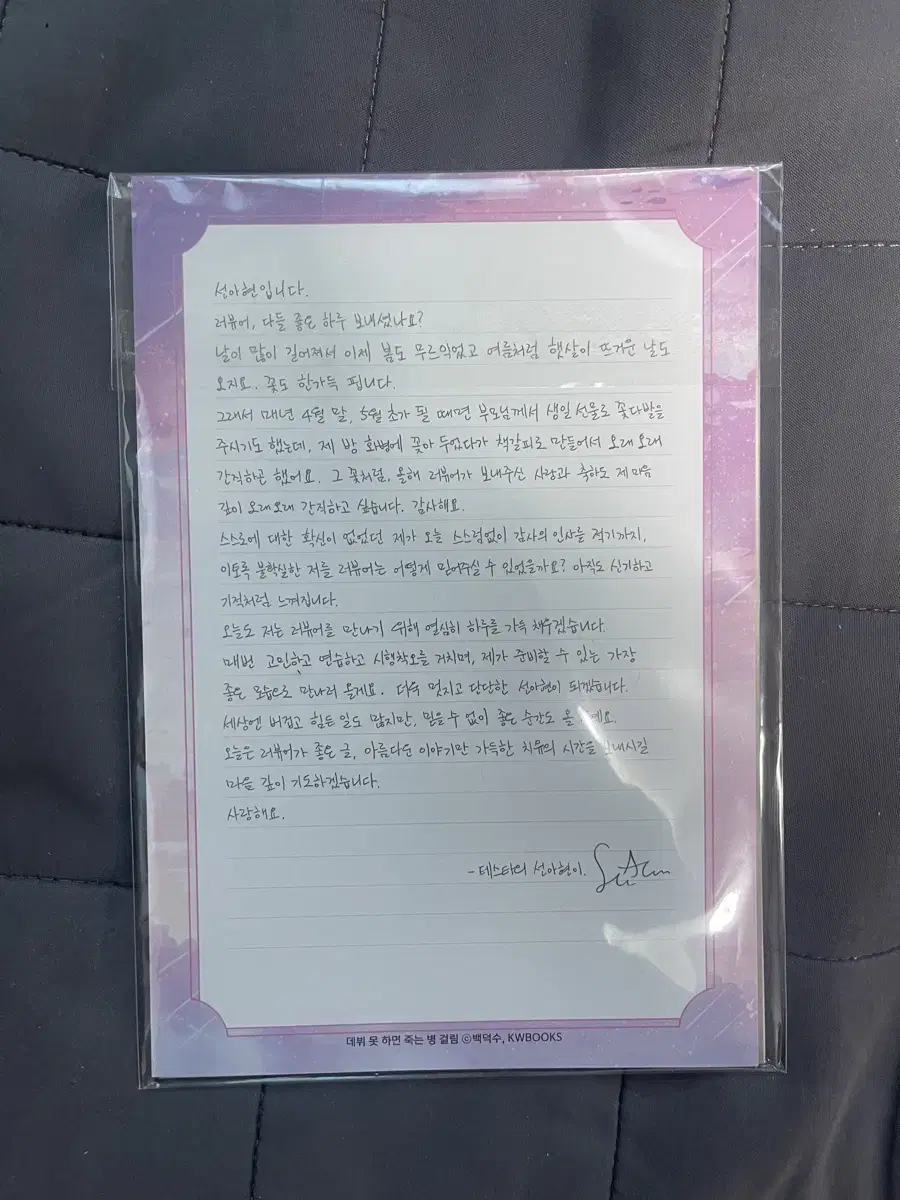 선아현입니다.
러뷰어, 다들 좋은 하루 보내셨나요?
날이 많이 길어져서 이제 봄도 무르익었고 여름처럼 햇살이 뜨거운 날도
오지요. 꽃도 한가득 핍니다.
그래서 매년 4월 말, 5월 초가 될 때면 부모님께서 생일 선물로 꽃다발을
주시기도 했는데, 제 방 화병에 꽂아 두었다가 책갈피로 만들어서 오래 오래
간직하곤 했어요. 그 꽃처럼, 올해 러뷰어가 보내주신 사랑과 축하도 제 마음
깊이 오래오래 간직하고 싶습니다. 감사해요.
스스로에 대한 확신이 없었던 제가 오늘 스스럼없이 감사의 인사를 적기까지,
이토록 불확실한 저를 러뷰어는 어떻게 믿어주실 수 있었을까요? 아직도 신기하고
기적처럼 느껴집니다.
오늘도 저는 러뷰어를 만나기 위해 열심히 하루를 가득 채우겠습니다.
매번 고민하고 연습하고 시행착오를 거치며, 제가 준비할 수 있는 가장
좋은 모습으로 만나러 올게요. 더욱 멋지고 단단한 선아현이 되겠습니다.
세상엔 버겁고 힘든 일도 많지만, 믿을 수 없이 좋은 순간도 올
오늘은 러뷰어가 좋은 글, 아름다운 이야기만 가득한 치유의 시간을
마음 깊이 기도하겠습니다.
사랑해요.
-테스타의 선아현이.
데뷔 못 하면 죽는 병 걸림 ⓒ백덕수, KWBOOKS